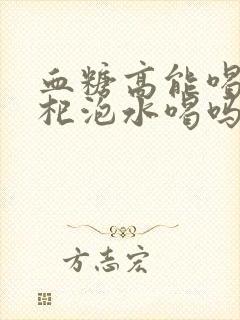 血糖高能喝
杞泡水喝吗
方志宏